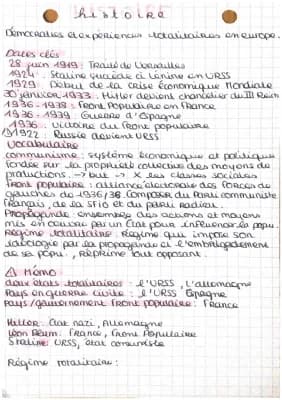 histoire
Démocraties et expériences totalitaires en europe.
Dates clés
28 juin 1919 : Traité de Versailles
1924 : Staline succède à Lénine en URSS
1929 : Début de la crise économique Mondiale
30 janvier 1933 : Hitler devient chancelier du III Reich
1936 - 1938 : Front Populaire en France
1936 - 1939 : Guerre d'Espagne
1936 : Victoire du Front populaire
1922 : Russie devient URSS
Vocabulaire
communisme : système économique et politique
fondée sur la propriété collective des moyens de
productions. → but → X les classes sociales
Front populaire : alliance électorale des forces de
gauches de 1936/38. Composer du Parti communiste
Français, de la SFIO et du parti radical.
Propagande : ensembles des actions et moyens
mis en oeuvre par un État pour influencer la popu.
Régime totalitaire : Régime que impose son
idéologie par la propagande et l'embrigadement
de sa popu, réprime tout opposant.
⚠ Mémo
deux états totalitaires : l'URSS, l'allemagne
Pays en guerre civile : l'URSS Espagne
Pays / gouvernement Front populaire : France
Hitler : État nazi, Allemagne
Léon Blum : France, Front Populaire
Staline : URSS, état communiste
Régime totalitaire :